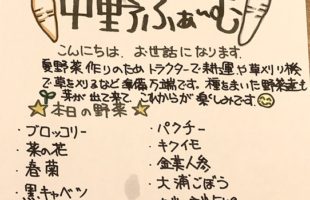 中野ふぁーむ
こんにちは、お世話になります。
夏野菜作りのためトラクターで耕運や草刈り機
で草を刈るなど準備万端です。種をまいた野菜達も
芽が出て来て、これからが楽しみです
本日の野菜
・ブロッコリー
・菜の花
・春菊
・黒キャベツ
・パクチー
・キクイモ
・金美人参
・大浦ごぼう